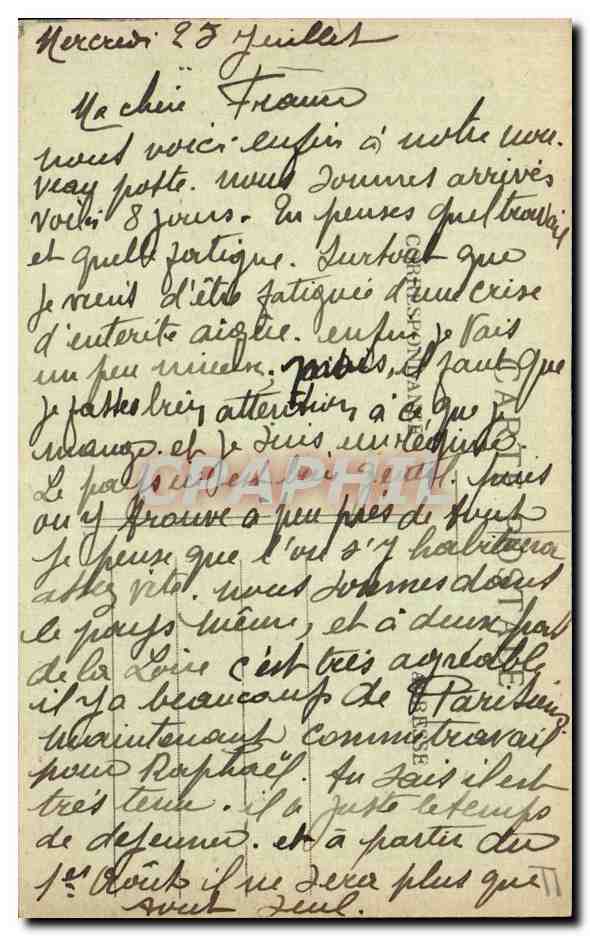 Mercredi 25 Juillet
Ma chère France
nous voici enfin à notre nou-
veau poste. nous sommes arrivés
voici 8 jours. Tu penses quel travail
et quelle fatigue. Surtout que
je viens d'être fatiguée d'une crise
d'enterite aigüe. enfin je vais
un peu mieux, mais, il faut que
je fasse bien attention à ce que je
mange. et je suis un régime.
Le pays est gentil. puis
on y trouve a peu près de tout
je pense que l'on s'y habituera
assez vite. nous sommes dans
le pays même, et à deux pas
de la Loire c'est très agréable
il y a beaucoup de Parisiens
maintenant comme travail
pour Raphaël. Tu sais il est
très tenu. il a juste le temps
de dejeuner. et à partir du
1er Août il ne sera plus que
tout seul.
CARTE POSTALE
CORRESPONDANCE
ADRESSE
CPAPHIL